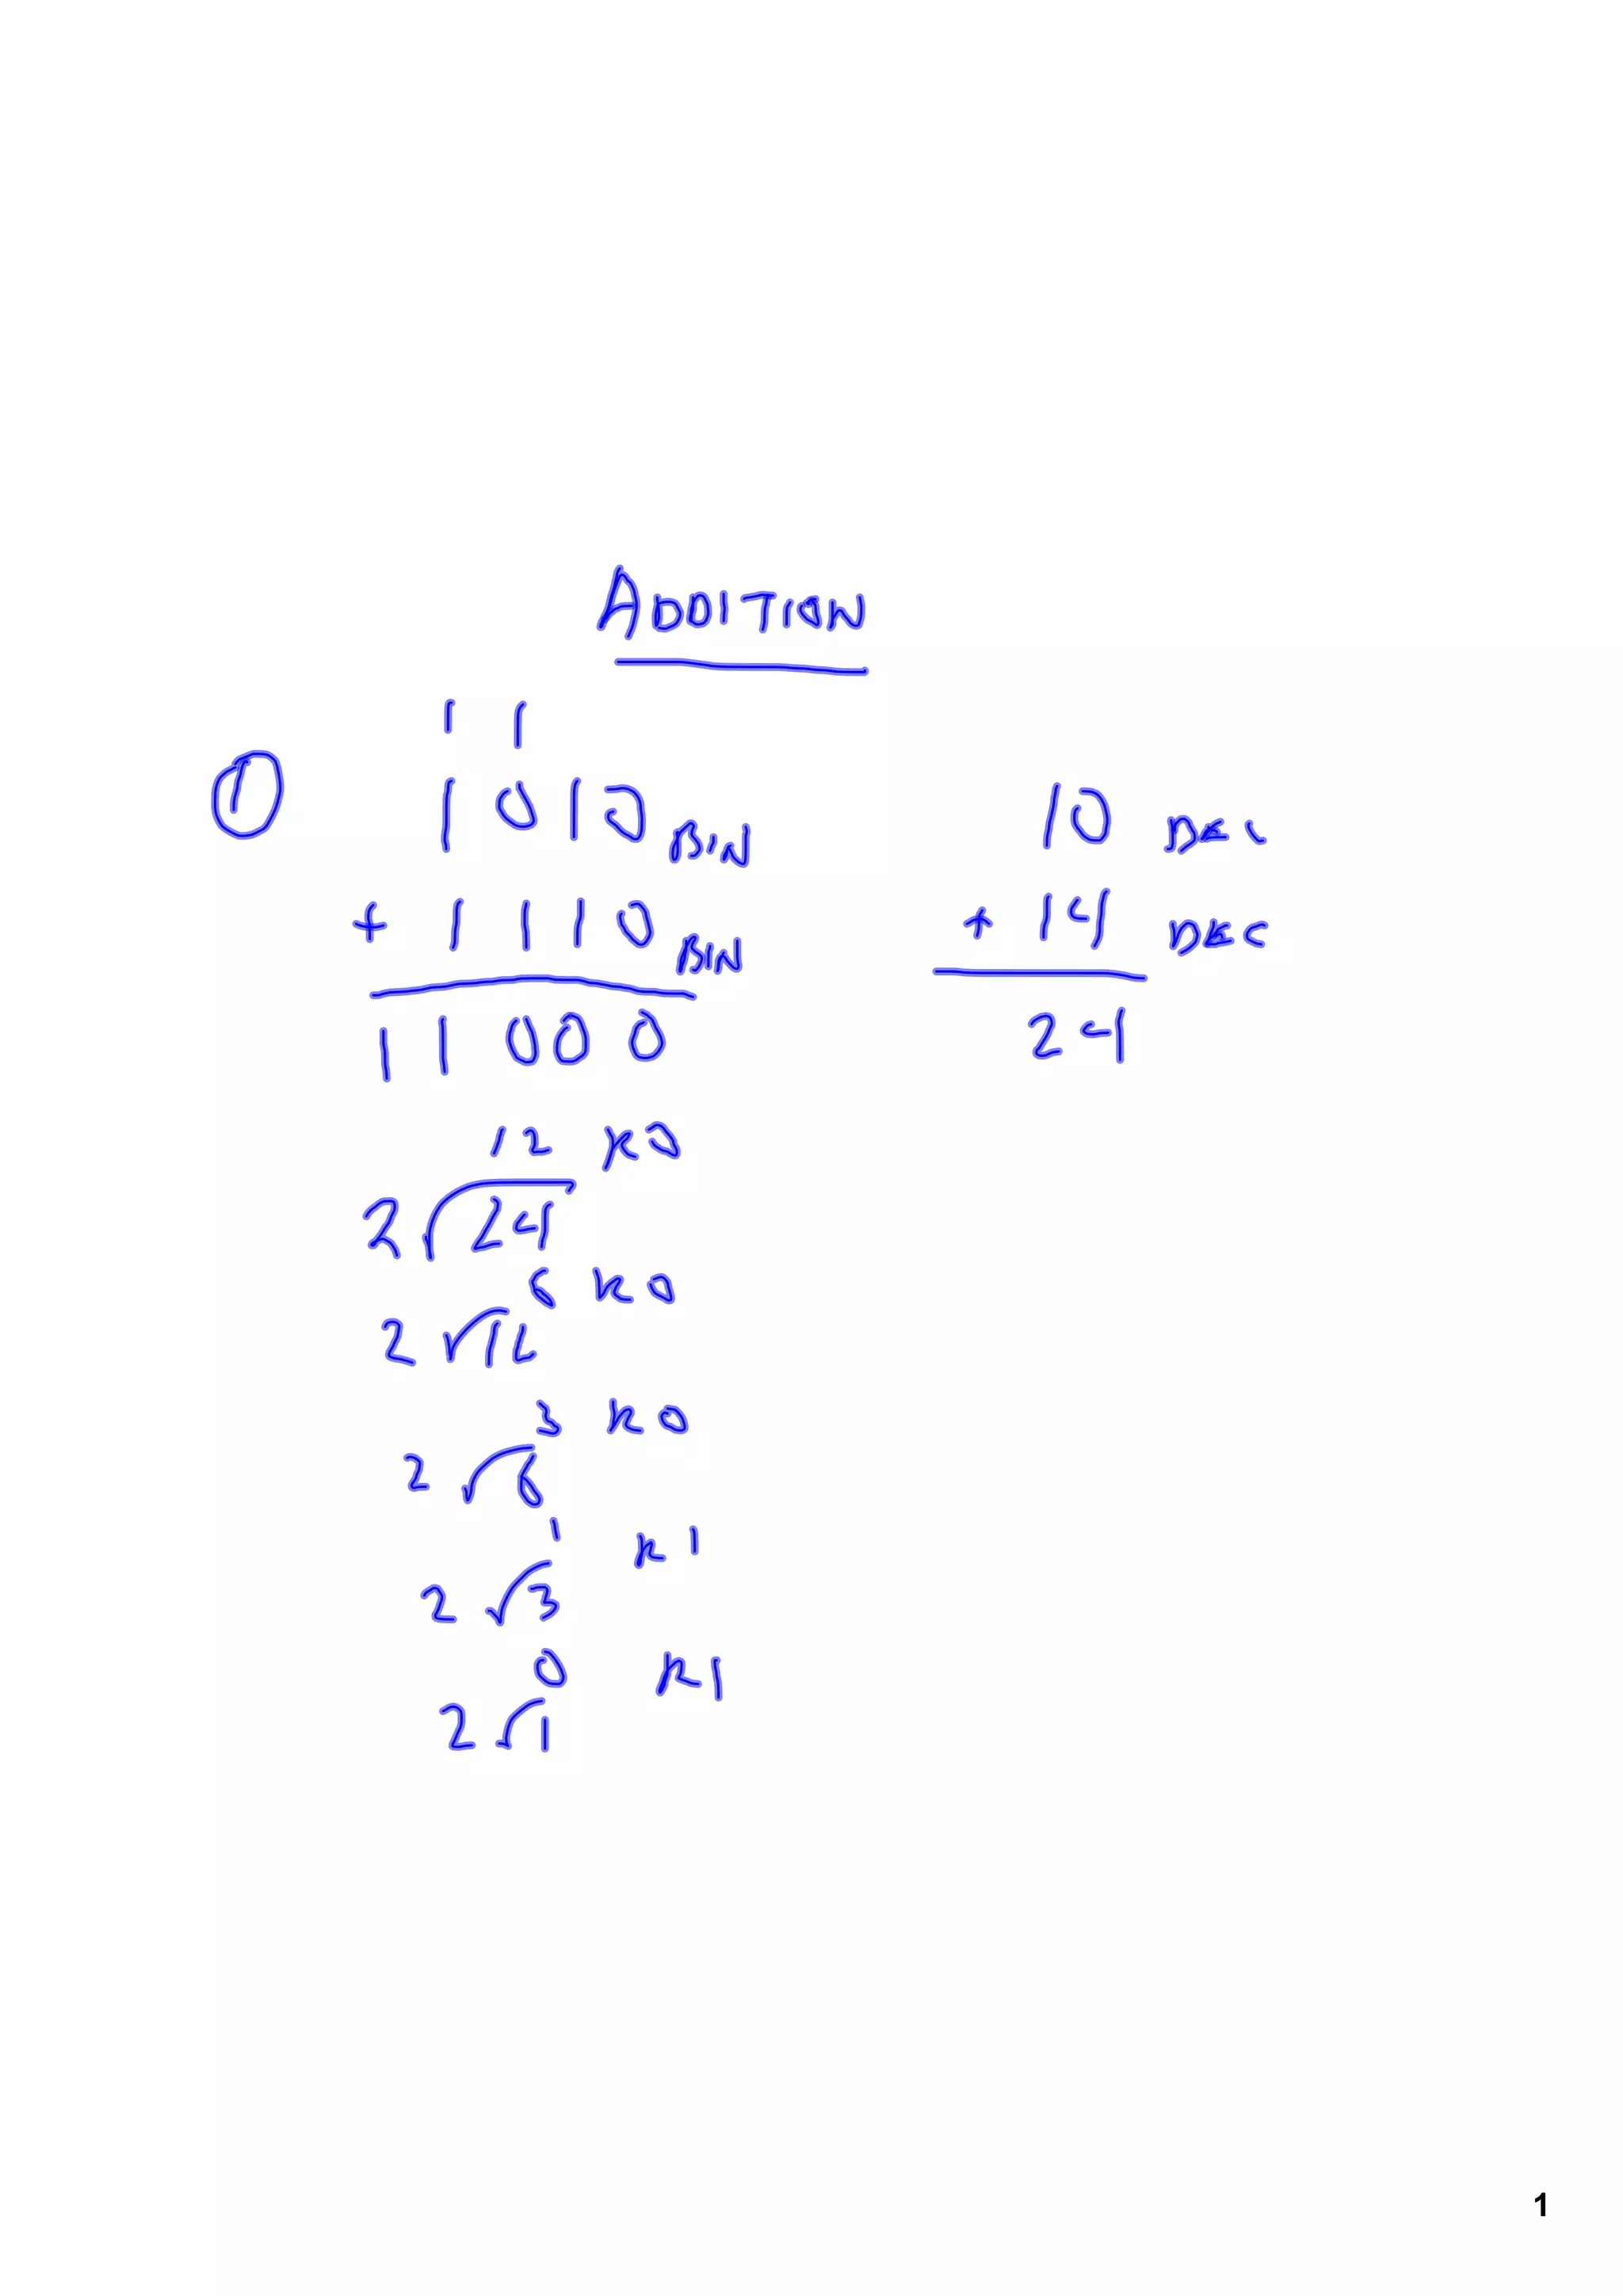 ADDITION
1 1
1 1010 BIN 10 DEC
+ 1110 BIN + 14 DEC
11000 24
12 R0
2 √24
6 R0
2 √12
3 R0
2 √6
1 R1
2 √3
0 R1
2 √1
1